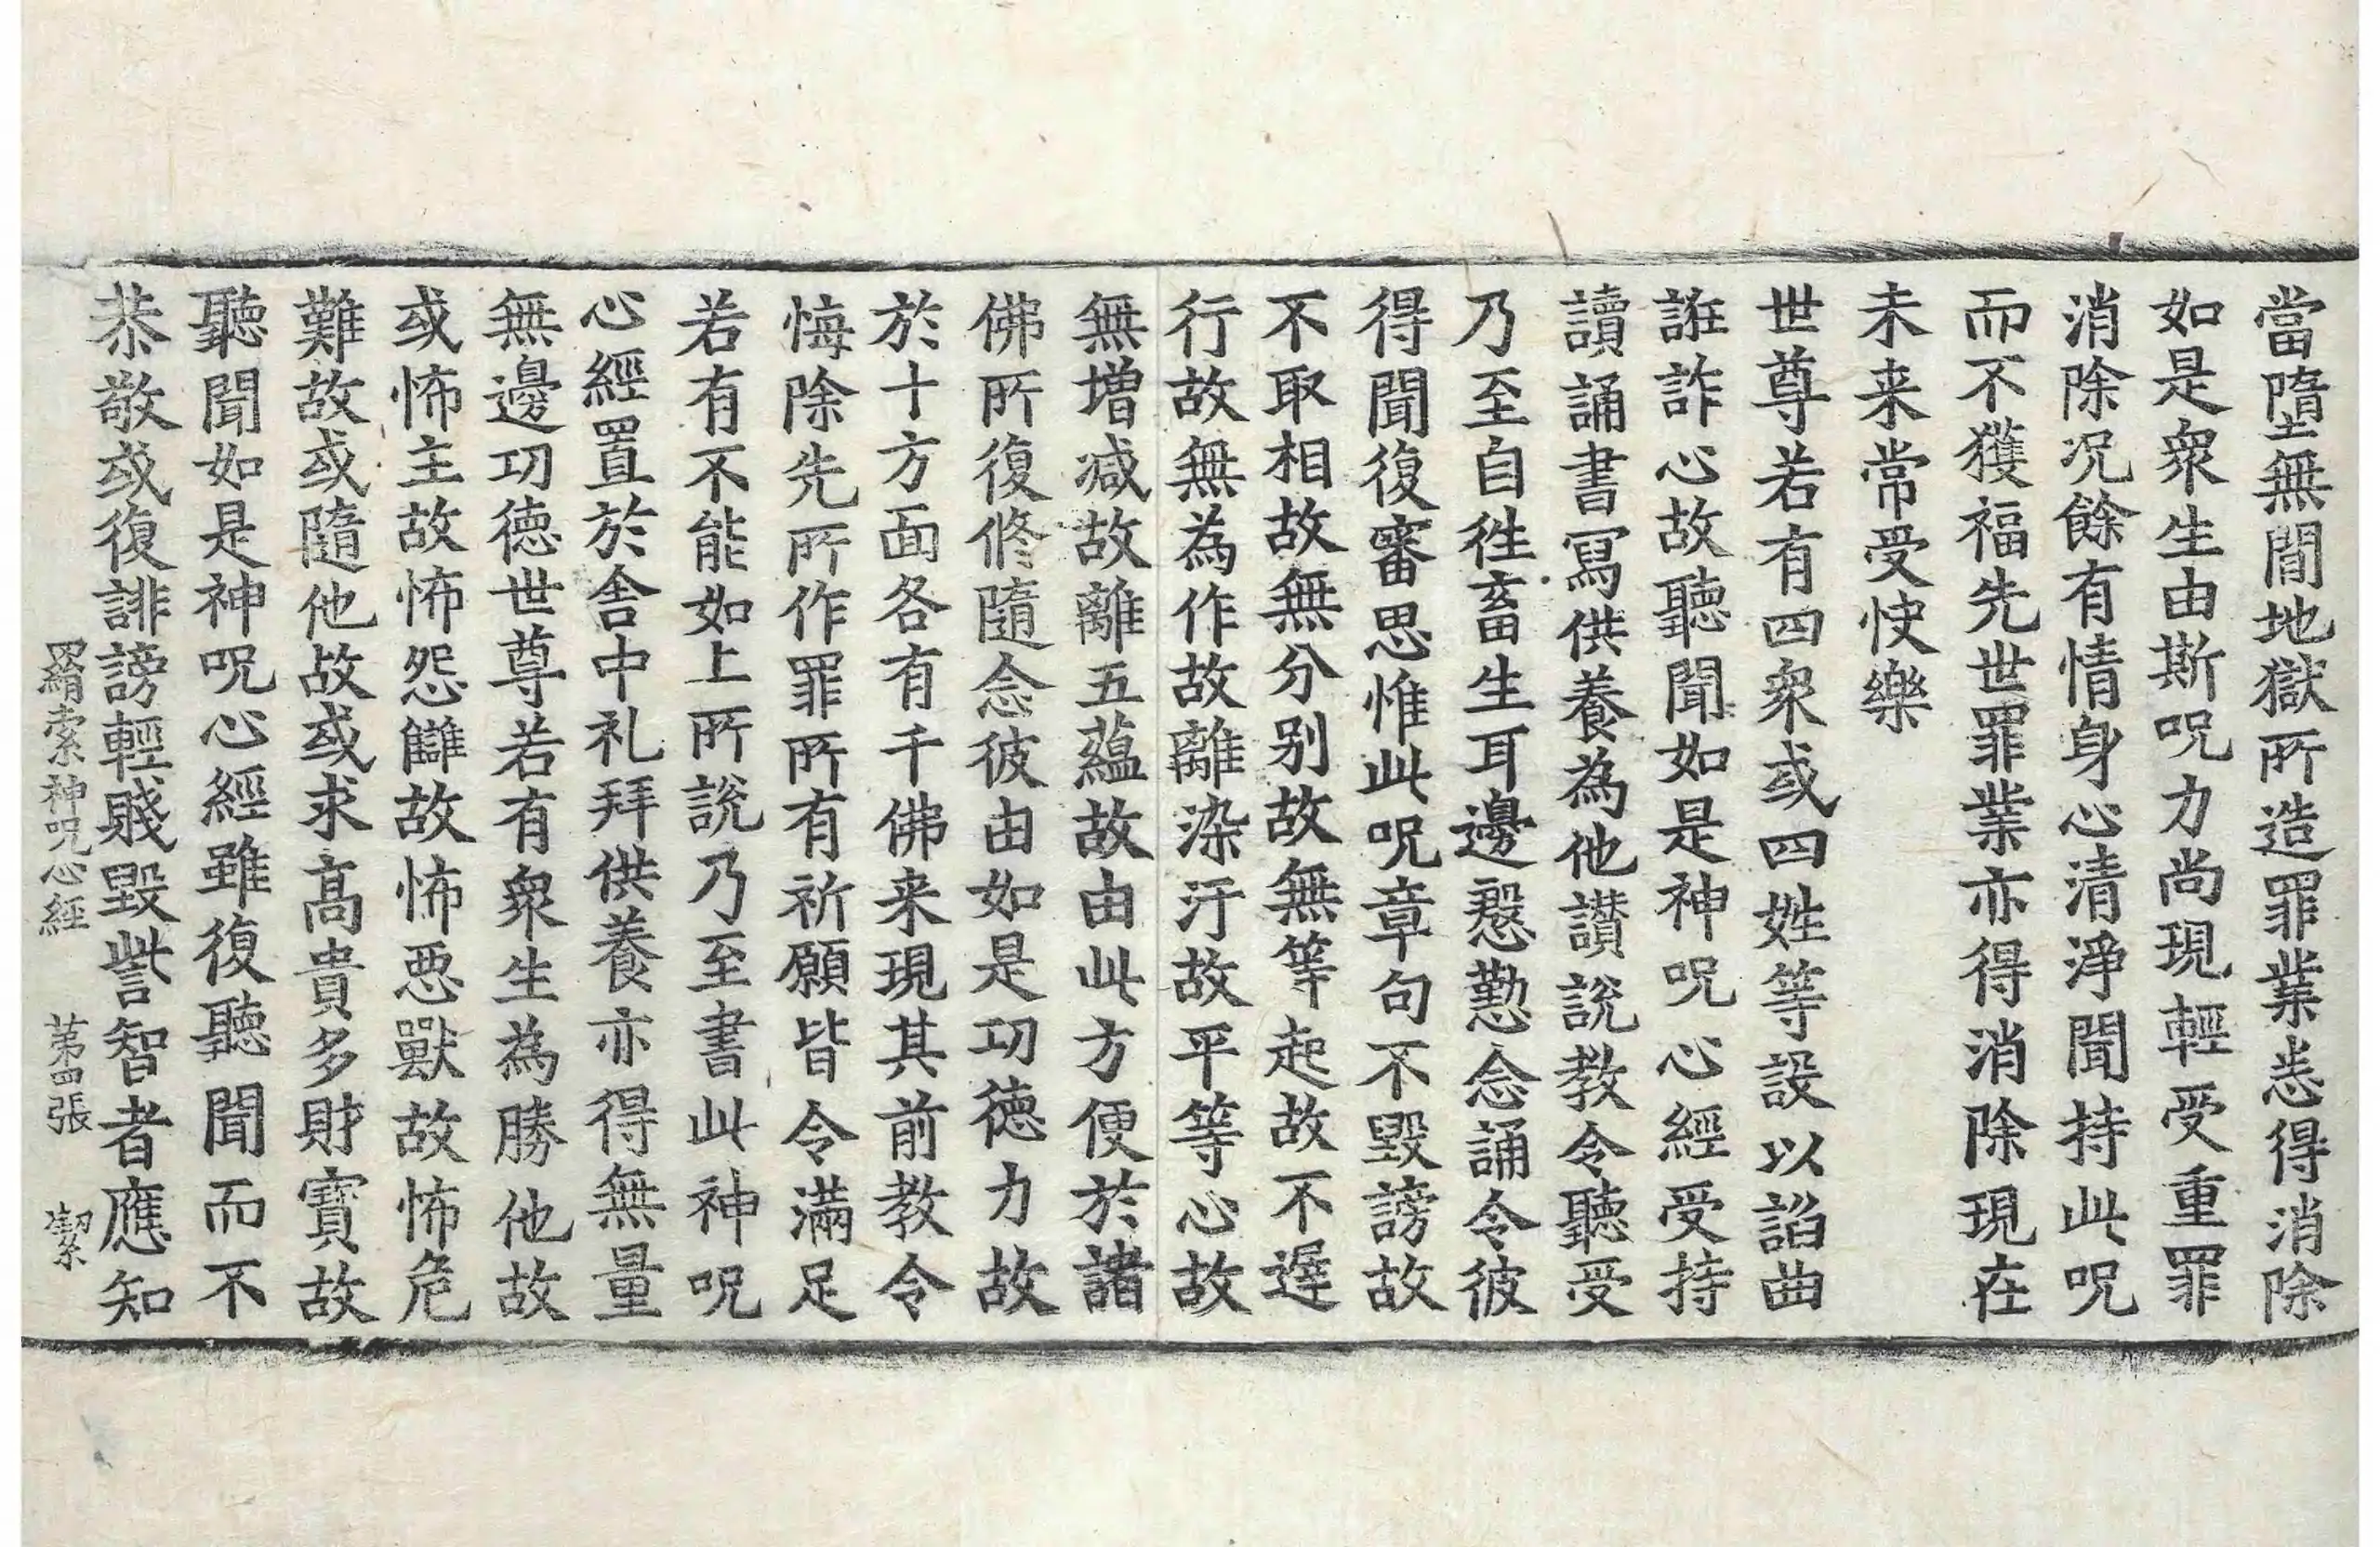 當墮無間地獄所造罪業悉得消除
如是衆生由斯呪力尚現輕受重罪
消除況餘有情身心清淨聞持此呪
而不獲福先世罪業亦得消除現在
未来常受快樂
世尊若有四衆或四姓等設以諂曲
誑詐心故聽聞如是神呪心經受持
讀誦書寫供養為他讃說教令聽受
乃至自徃畜生耳邊慇懃念誦令彼
得聞復審思惟此呪章句不毀謗故
不取相故無分別故無等起故不遲
行故無為作故離染汙故平等心故
無增減故離五蘊故由此方便於諸
佛所復修隨念彼由如是功德力故
於十方面各有千佛来現其前教令
悔除先所作罪所有祈願皆令滿足
若有不能如上所說乃至書此神呪
心經置於舍中礼拜供養亦得無量
無邊功德世尊若有衆生為勝他故
或怖主故怖怨讎故怖惡獸故怖危
難故或隨他故或求高貴多財寶故
聽聞如是神呪心經雖復聽聞而不
恭敬或復誹謗輕賤毀訾智者應知
羂索神呪心經 苐四張 潔